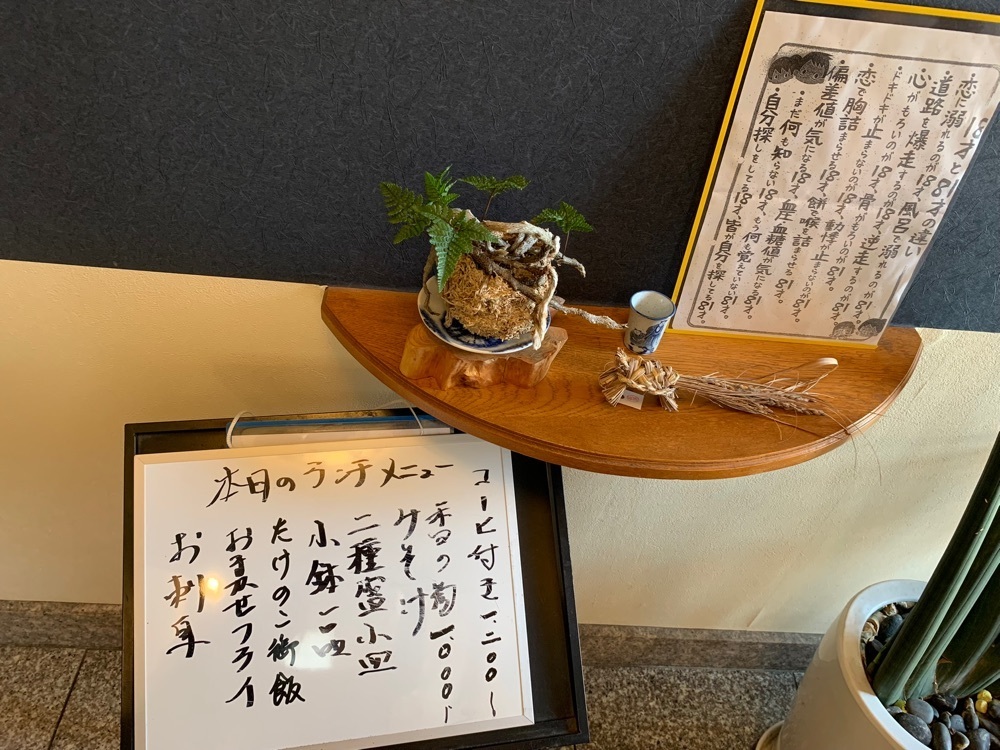 18才と81才の違い
恋に溺れるのが18才、風呂で溺れるのが81才。
道路を爆走するのが18才、逆走するのが81才。
心がもろいのが18才、骨がもろいのが81才。
ドキドキが止まらないのが18才、動悸が止まらないのが81才。
恋で胸詰まらせる18才、餅で喉を詰まらせる81才。
偏差値が気になる18才、血圧・血糖値が気になる81才。
まだ何も知らない18才、もう何も覚えていない81才。
自分探しをしてる18才、皆が自分を探してる81才。
本日のランチメニュー
コーヒー付き一、二〇〇
一、〇〇〇
みそ汁
二種盛小皿
小鉢一皿
たけのこ御飯
おまかせフライ
お刺身